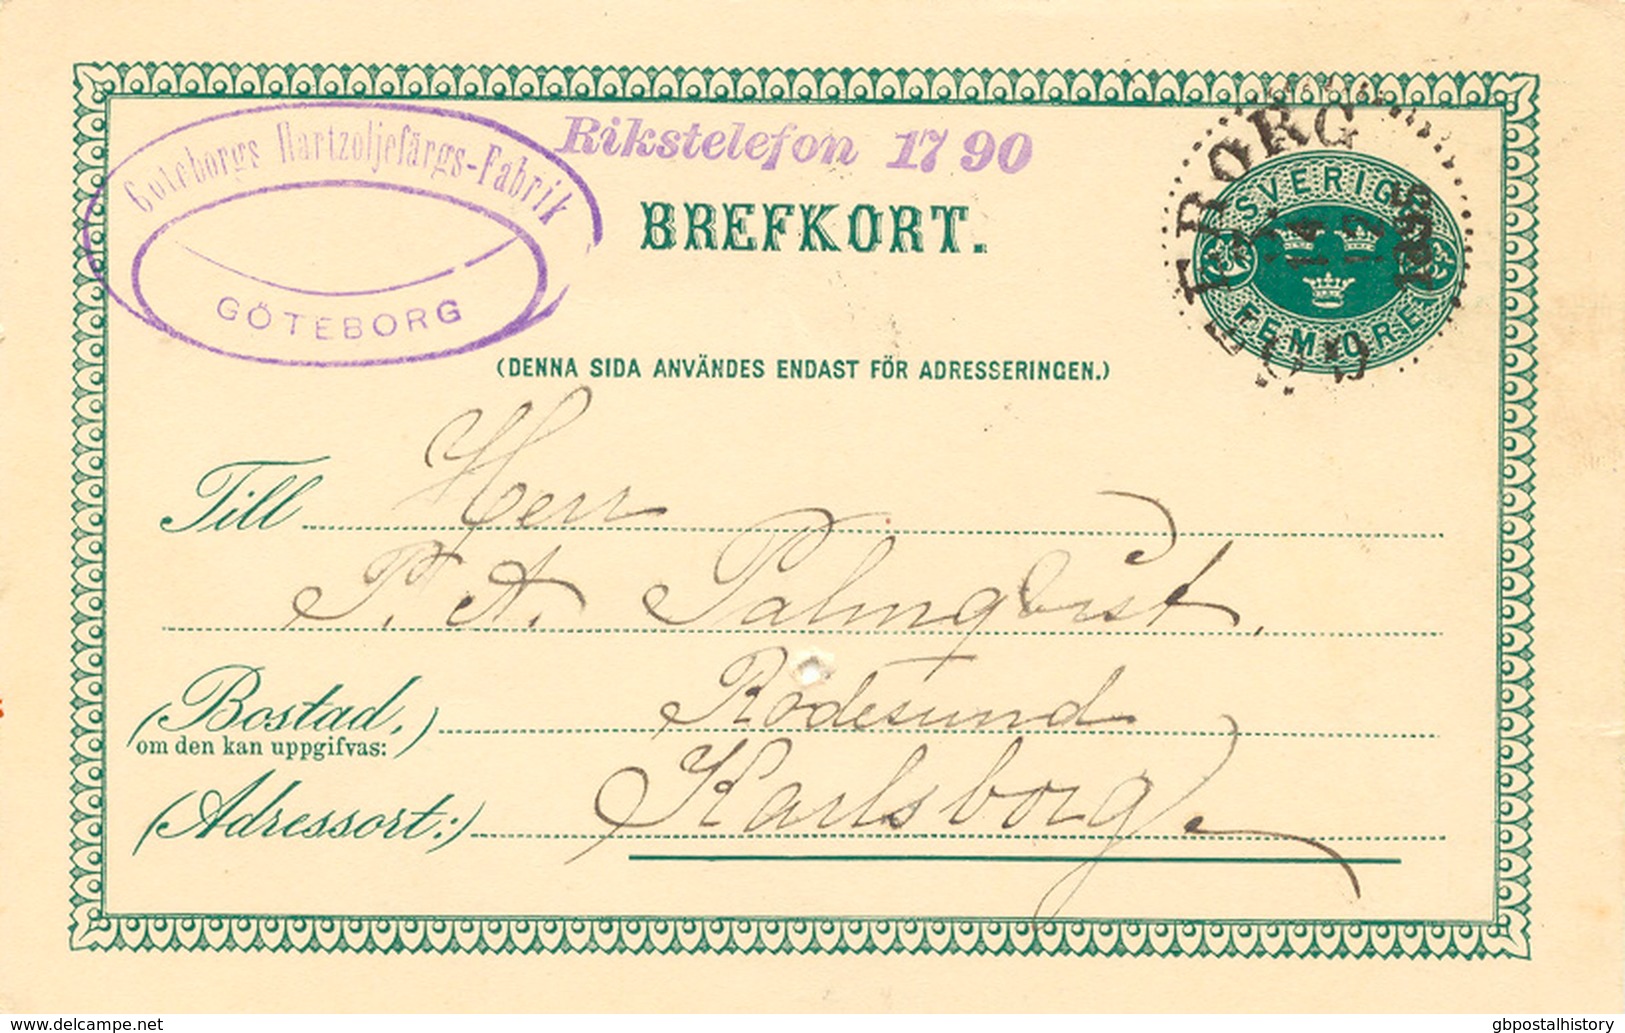 Göteborgs Hartzoljefärgs-Fabrik
GÖTEBORG
Rikstelefon 17 90
BREFKORT.
SVERIGE
FEM ÖRE
GÖTEBORG
14
(DENNA SIDA ANVÄNDES ENDAST FÖR ADRESSERINGEN.)
Till Herr
P. A. Palmqvist,
(Bostad,) Rödesund
om den kan uppgifvas:
(Adressort:) Karlsborg
gbpostalhistory